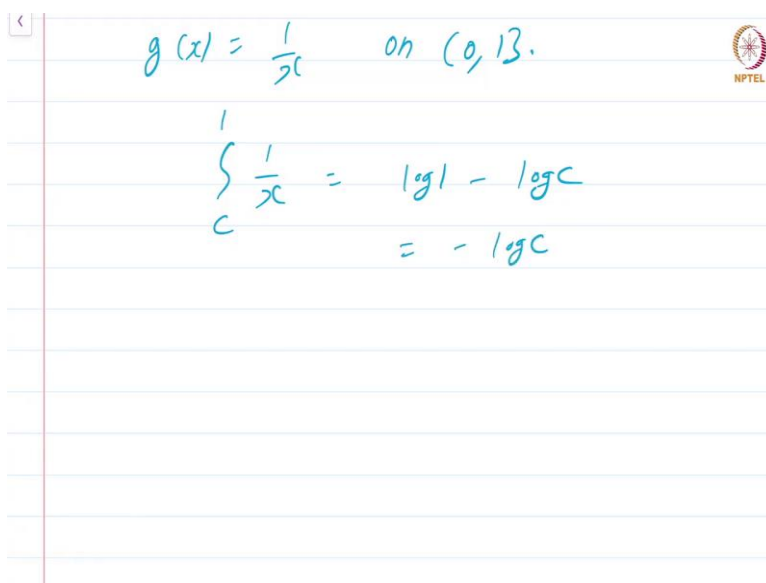 g(x) = 1/x on (0, 1].
NPTEL
∫_c^1 1/x = log1 - logc
= - logc